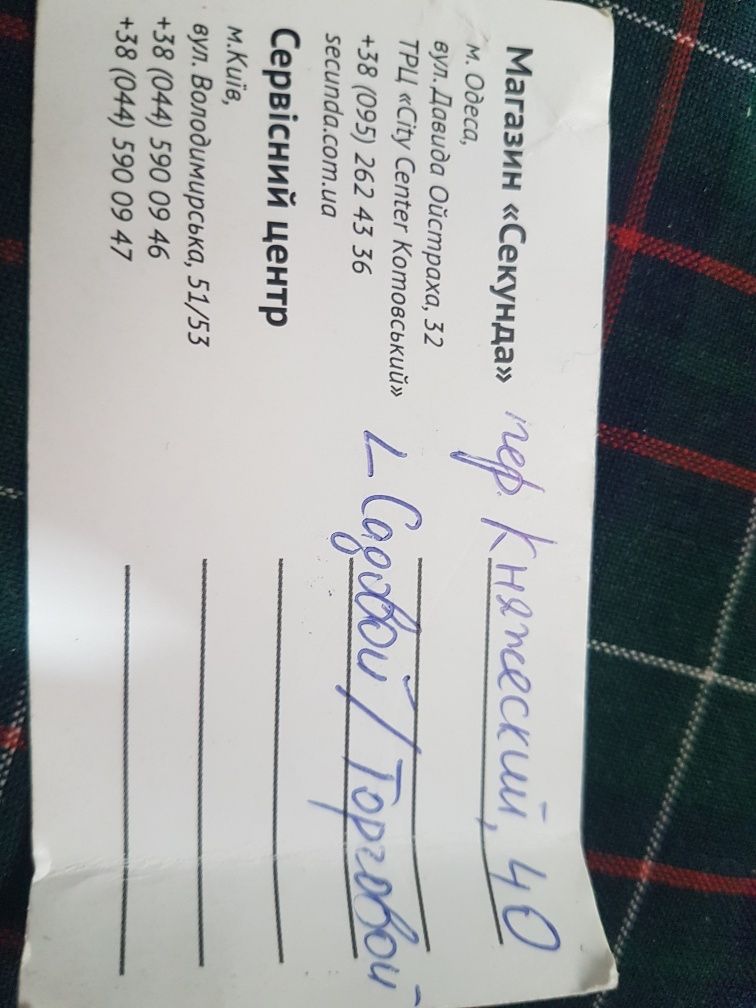 Магазин «Секунда»
м. Одеса,
вул. Давида Ойстраха, 32
ТРЦ «City Center Котовський»
+38 (095) 262 43 36
secunda.com.ua
Сервісний центр
м.Київ,
вул. Володимирська, 51/53
+38 (044) 590 09 46
+38 (044) 590 09 47
пер. Княжеский, 40
∠ Садовой / Торговой